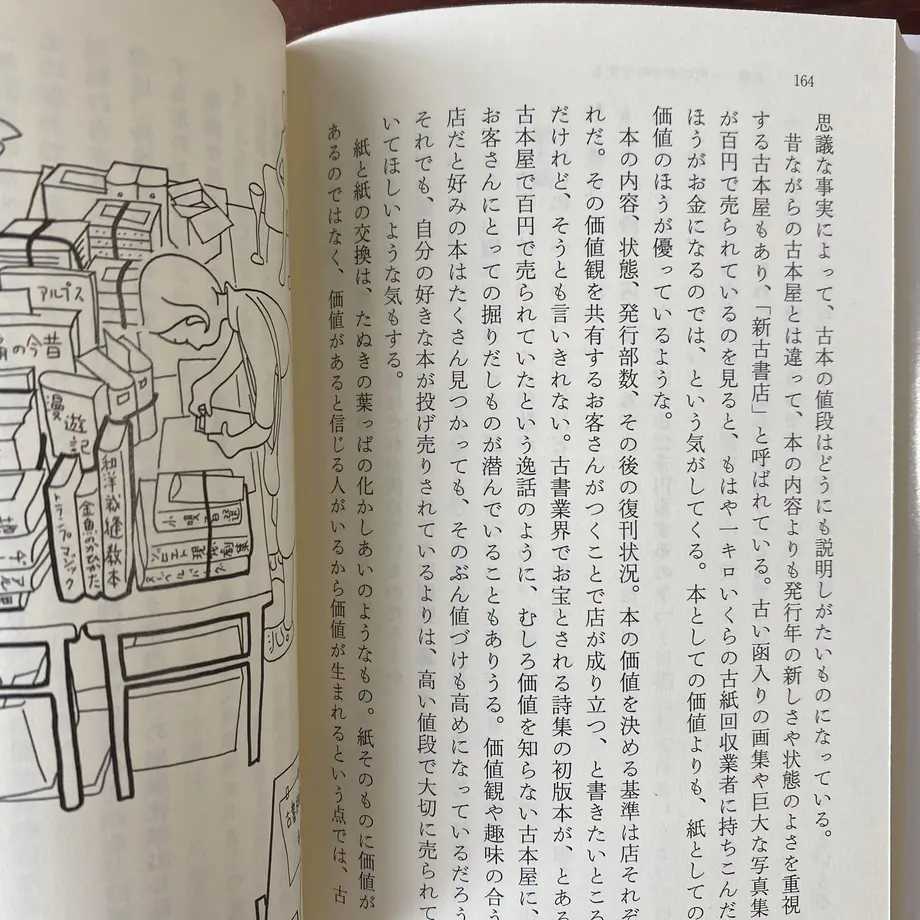 164
思議な事実によって、古本の値段はどうにも説明しがたいものになっている。
昔ながらの古本屋とは違って、本の内容よりも発行年の新しさや状態のよさを重視
する古本屋もあり、「新古書店」と呼ばれている。古い函入りの画集や巨大な写真集
が百円で売られているのを見ると、もはや一キロいくらの古紙回収業者に持ちこんだ
ほうがお金になるのでは、という気がしてくる。本としての価値よりも、紙としての
価値のほうが優っているような。
本の内容、状態、発行部数、その後の復刊状況。本の価値を決める基準は店それぞ
れだ。その価値観を共有するお客さんがつくことで店が成り立つ、と書きたいところ
だけれど、そうとも言いきれない。古書業界でお宝とされる詩集の初版本が、とある
古本屋で百円で売られていたという逸話のように、むしろ価値を知らない古本屋に、
お客さんにとっての掘りだしものが潜んでいることもありうる。価値観や趣味の合う
店だと好みの本はたくさん見つかっても、そのぶん値づけも高めになっているだろう
それでも、自分の好きな本が投げ売りされているよりは、高い値段で大切に売られて
いてほしいような気もする。
紙と紙の交換は、たぬきの葉っぱの化かしあいのようなもの。紙そのものに価値が
あるのではなく、価値があると信じる人がいるから価値が生まれるという点では、古
アルプス
の今昔
漫遊記
和洋裁縫教本
金魚のかいかた
トランプマジック
小唄百選
現代
劇集